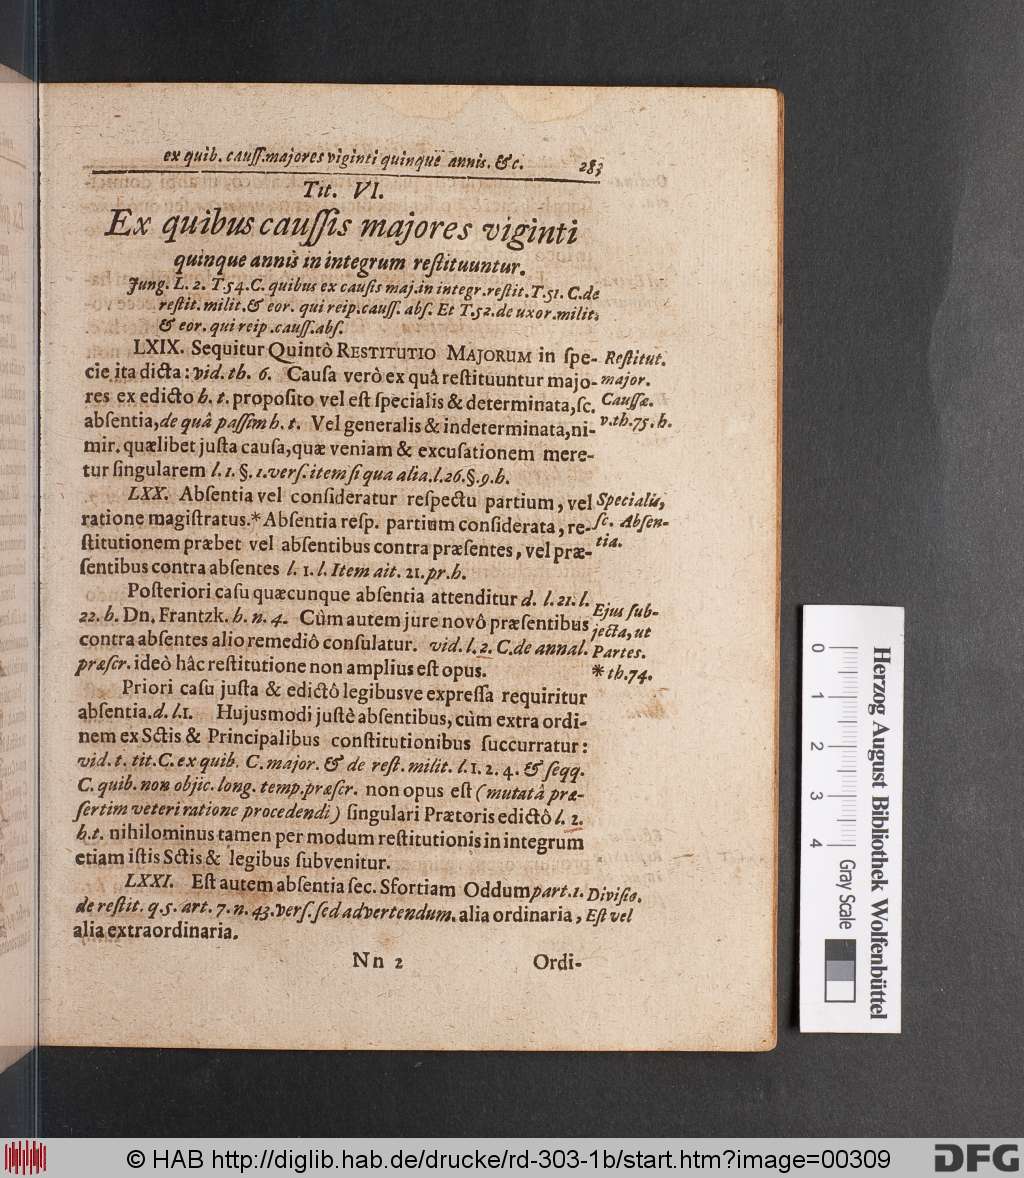 ex quib. cauſſ. majores viginti quinque annis. &c. 283
Tit. VI.
Ex quibus cauſſis majores viginti
quinque annis in integrum reſtituuntur.
Jung. L. 2. T. 54. C. quibus ex cauſis maj. in integr. reſtit. T. 51. C. de
reſtit. milit. & eor. qui reip. cauſſ. abſ. Et T. 52. de uxor. milit.
& eor. qui reip. cauſſ. abſ.
LXIX. Sequitur Quintò RESTITUTIO MAJORUM in ſpe-
cie ita dicta: vid. th. 6. Cauſa verò ex quâ reſtituuntur majo-
res ex edicto h. t. propoſito vel eſt ſpecialis & determinata, ſc.
abſentia, de quâ paſſim h. t. Vel generalis & indeterminata, ni-
mir. quælibet juſta cauſa, quæ veniam & excuſationem mere-
tur ſingularem l. 1. §. 1. verſ. item ſi qua alia. l. 26. §. 9. h.
Reſtitut.
major.
Cauſſæ.
v. th. 75. h.
LXX. Abſentia vel conſideratur reſpectu partium, vel
ratione magiſtratus.* Abſentia reſp. partium conſiderata, re-
ſtitutionem præbet vel abſentibus contra præſentes, vel præ-
ſentibus contra abſentes l. 1. l. Item ait. 21. pr. h.
Specialis,
ſc. Abſen-
tia.
Poſteriori caſu quæcunque abſentia attenditur d. l. 21. l.
22. h. Dn. Frantzk. h. n. 4. Cùm autem jure novô præſentibus
contra abſentes alio remediô conſulatur. vid. l. 2. C. de annal.
præſcr. ideò hâc reſtitutione non amplius eſt opus.
Ejus ſub-
jecta, ut
Partes.
* th. 74.
Priori caſu juſta & edictô legibusve expreſſa requiritur
abſentia. d. l. 1. Hujusmodi juſtè abſentibus, cùm extra ordi-
nem ex Sctis & Principalibus conſtitutionibus ſuccurratur:
vid. t. tit. C. ex quib. C. major. & de reſt. milit. l. 1. 2. 4. & ſeqq.
C. quib. non objic. long. temp. præſcr. non opus eſt (mutatâ præ-
ſertim veteri ratione procedendi) ſingulari Prætoris edictô l. 2.
h. t. nihilominus tamen per modum reſtitutionis in integrum
etiam iſtis Sctis & legibus ſubvenitur.
LXXI. Eſt autem abſentia ſec. Sfortiam Oddum part. 1.
de reſtit. q. 5. art. 7. n. 43. verſ. ſed advertendum. alia ordinaria,
alia extraordinaria.
Diviſio.
Eſt vel
Nn 2 Ordi-
0 1 2 3 4
Herzog August Bibliothek Wolfenbüttel
Gray Scale
© HAB http://diglib.hab.de/drucke/rd-303-1b/start.htm?image=00309
DFG